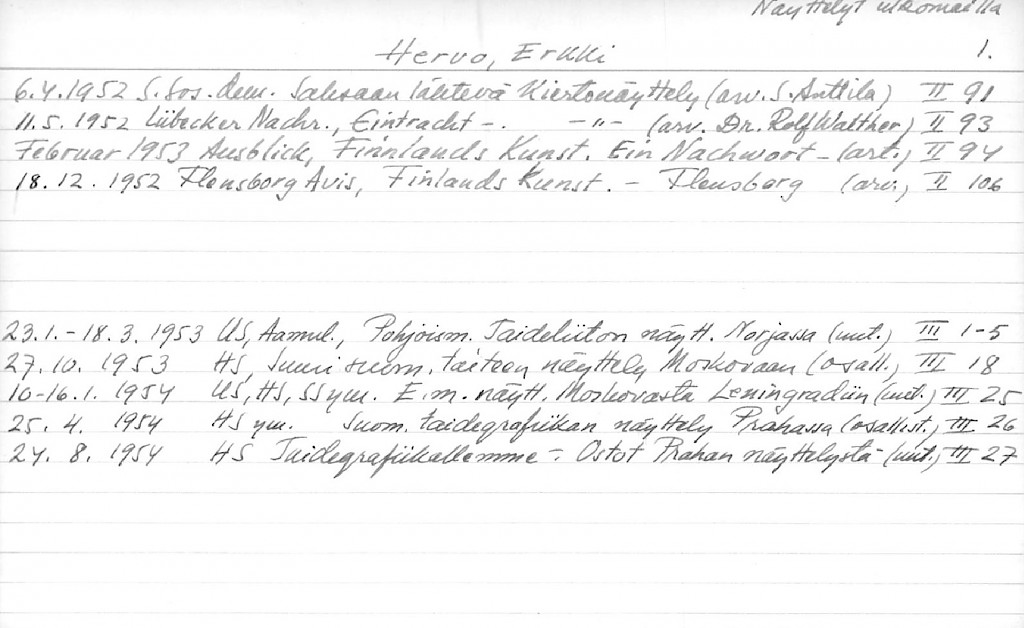 Näyttelyt ulkomailla
Hervo, Erkki 1.
6.4.1952 S. Sos. Dem. Saksaan lähtevä Kiertonäyttely (arv. S. Anttila) II 91
11.5.1952 Lübecker Nachr., Eintracht -. -"- (arv. Dr. Rolf Walther) II 93
Februar 1953 Ausblick, Finnlands Kunst. Ein Nachwort - (art.) II 94
18.12.1952 Flensborg Avis, Finlands Kunst. - Flensborg (arv.) II 106
23.1.-18.3.1953 US, Aamul., Pohjoism. Taideliiton näytt. Norjassa (uut.) III 1-5
27.10.1953 HS, Suuri suom. taiteen näyttely Moskovaan (osall.) III 18
10-16.1.1954 US, HS, SS ym. E.m. näytt. Moskovasta Leningradiin (uut.) III 25
25.4.1954 HS ym. Suom. taidegrafiikan näyttely Prahassa (osallist.) III 26
24.8.1954 HS Taidegrafiikallemme -. Ostot Prahan näyttelystä (uut.) III 27